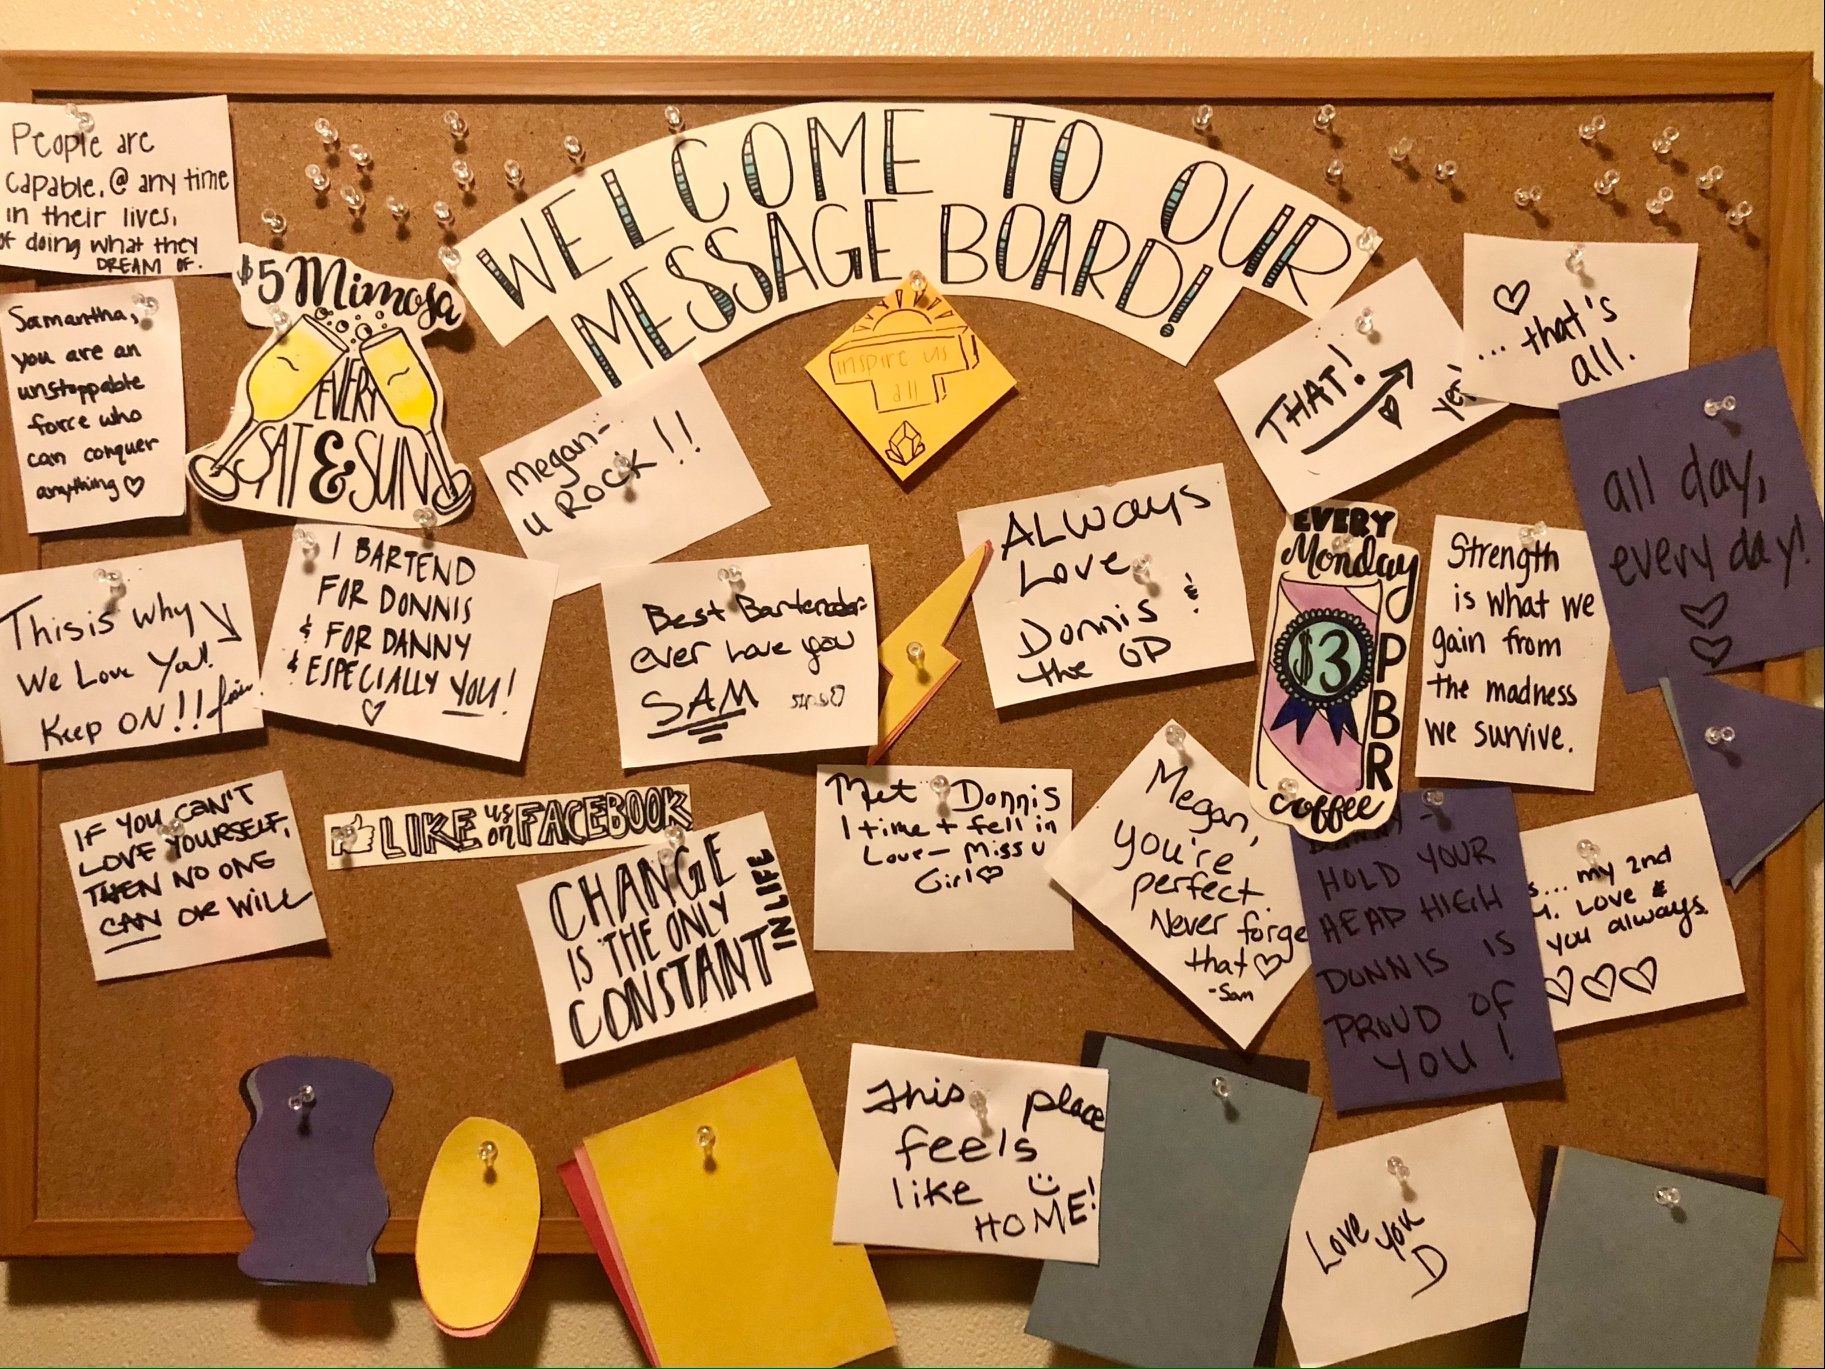 WELCOME TO OUR
MESSAGE BOARD!
People are
capable, @ any time
in their lives,
of doing what they
DREAM OF.
$5 Mimosa
EVERY
SAT & SUN
inspire us
all
THAT!
yes!
... that's
all.
Samantha,
you are an
unstoppable
force who
can conquer
anything ♡
Megan-
u ROCK!!
all day,
every day!
ALWAYS
Love
Donnis &
the OP
EVERY
Monday
$3
PBR
coffee
Strength
is what we
gain from
the madness
we survive.
This is why
We Love You!!
Keep ON!!
I BARTEND
FOR DONNIS
& FOR DANNY
& ESPECIALLY YOU!
♡
Best Bartender
ever Love you
SAM
IF YOU CAN'T
LOVE YOURSELF,
THEN NO ONE
CAN OR WILL
LIKE us on FACEBOOK
CHANGE
IS THE ONLY
CONSTANT
IN LIFE
Met Donnis
1 time + fell in
Love - Miss U
Girl ♡
Megan,
you're
perfect.
Never forge
that ♡
-Sam
HOLD YOUR
HEAD HIGH
DONNIS IS
PROUD OF
YOU!
... my 2nd
Love &
you always.
♡♡♡
This place
feels
like
HOME!
Love you
D